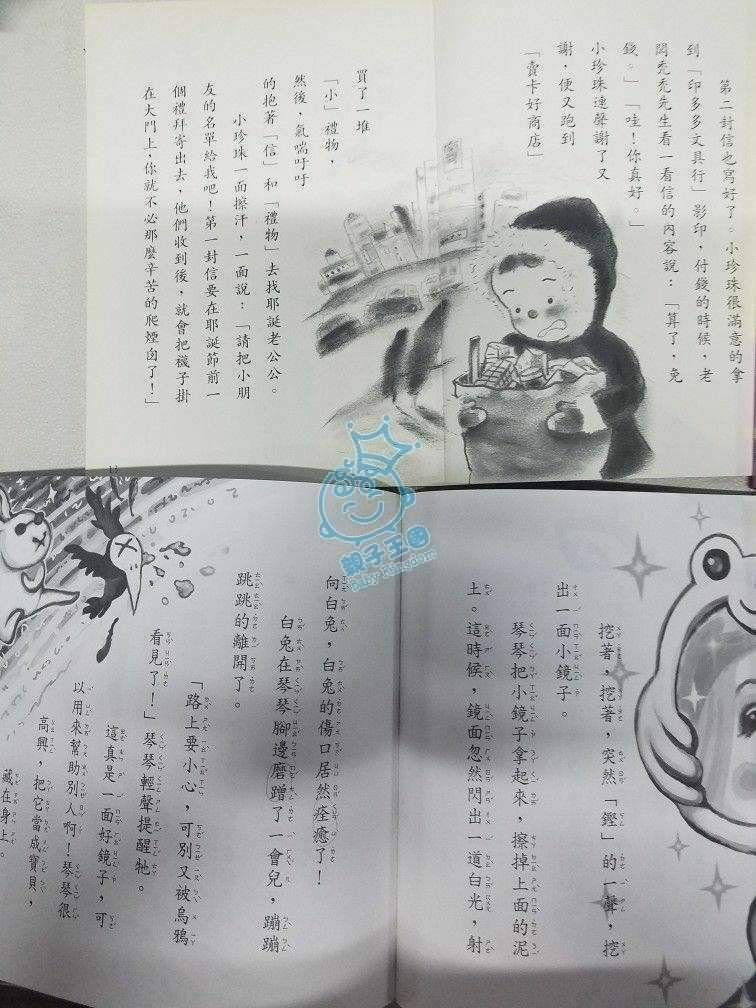 第二封信也寫好了。小珍珠很滿意的拿
到「印多多文具行」影印，付錢的時候，老
闆禿禿先生看一看信的內容說：「算了，免
錢。」「哇！你真好。」
小珍珠連聲謝了又
謝，便又跑到
「賣卡好商店」
買了一堆
「小」禮物，
然後，氣喘吁吁
的抱著「信」和「禮物」去找耶誕老公公。
小珍珠一面擦汗，一面說：「請把小朋
友的名單給我吧！第一封信要在耶誕節前一
個禮拜寄出去，他們收到後，就會把襪子掛
在大門上，你就不必那麼辛苦的爬煙囪了！」
親子王國
Baby Kingdom
挖著，挖著，突然「鏗」的一聲，挖
出一面小鏡子。
琴琴把小鏡子拿起來，擦掉上面的泥
土。這時候，鏡面忽然閃出一道白光，射
向白兔，白兔的傷口居然痊癒了！
白兔在琴琴腳邊磨蹭了一會兒，蹦蹦
跳跳的離開了。
「路上要小心，可別又被烏鴉
看見了！」琴琴輕聲提醒牠。
這真是一面好鏡子，可
以用來幫助別人啊！琴琴很
高興，把它當成寶貝，
藏在身上。